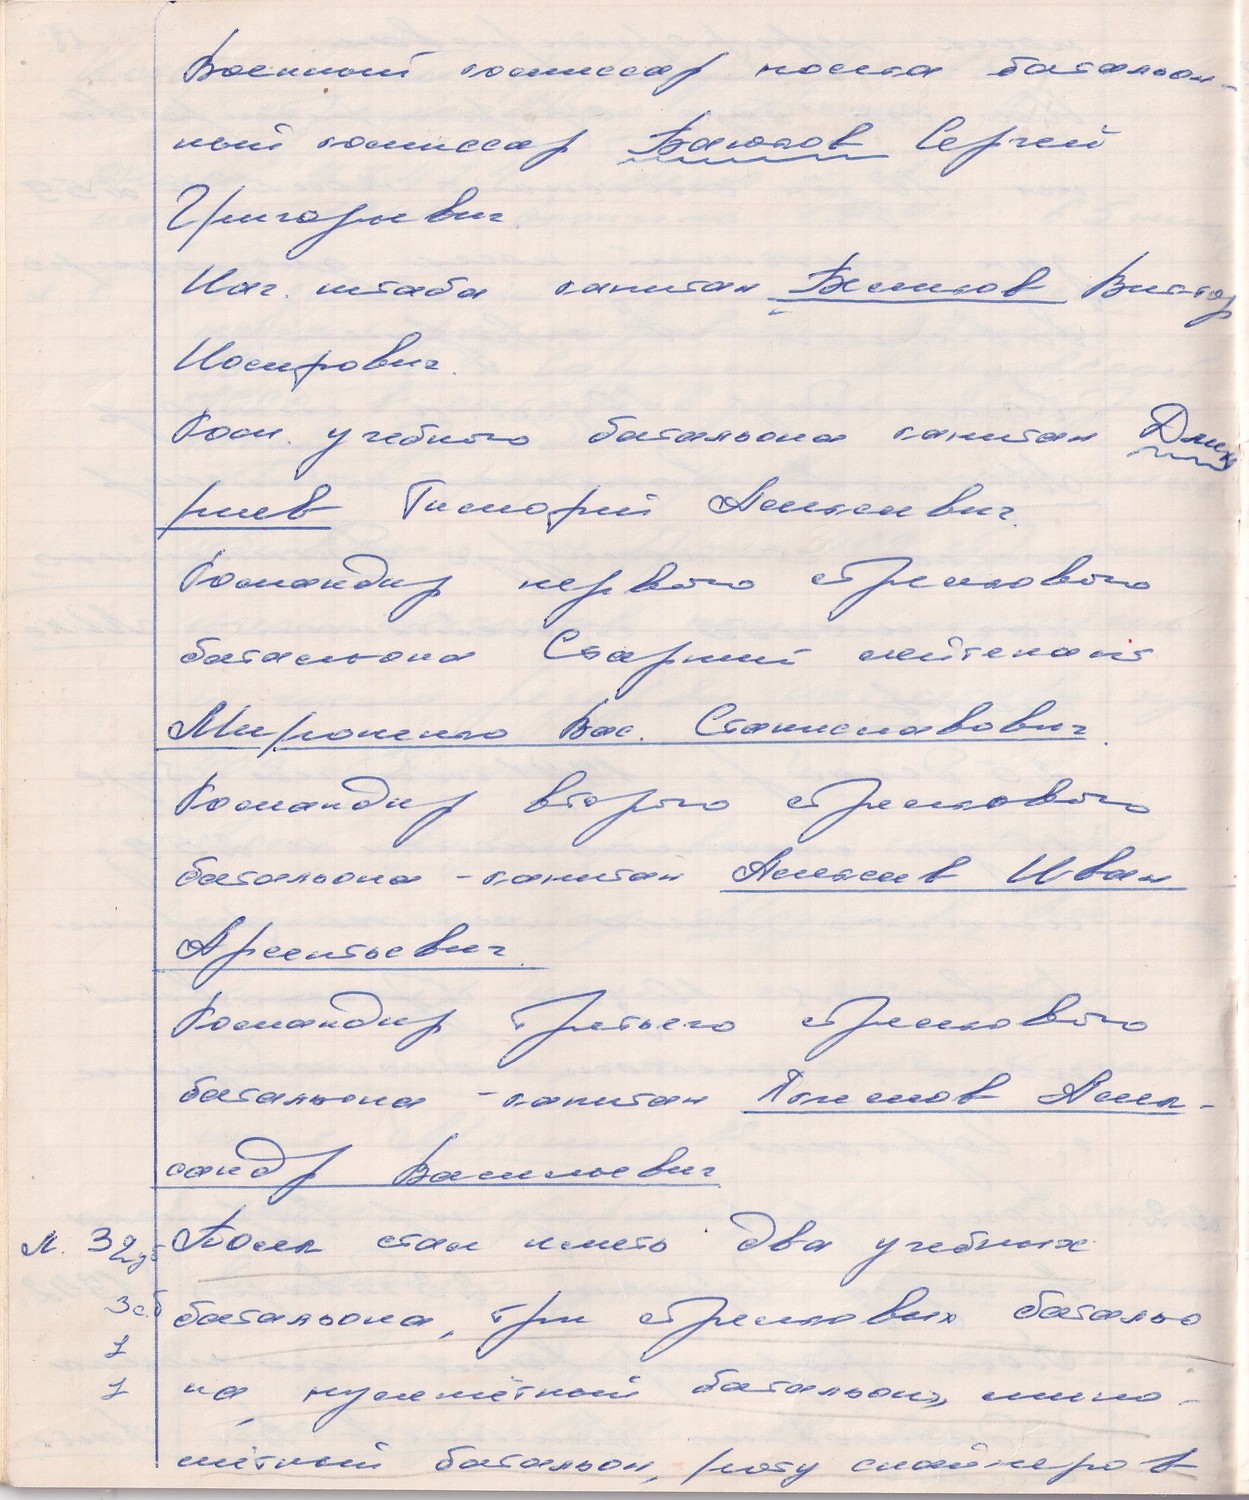 Военный комиссар полка батальон-
ный комиссар Баюков Сергей
Григорьевич
Нач. штаба капитан Беликов Виктор
Иосифович.
Ком. учебного батальона капитан Дмит
риев Тимофей Алексеевич.
Командир первого стрелкового
батальона Старший лейтенант
Мироненко Вас. Станиславович.
Командир второго стрелкового
батальона - капитан Алексеев Иван
Арсентьевич.
Командир третьего стрелкового
батальона - капитан Алек-
сандр Васильевич
Полк стал иметь два учебных
батальона, три стрелковых батальо
на, пулемётный батальон, мино-
мётный батальон, роту снайперов
3 2уб
3сб
1
1